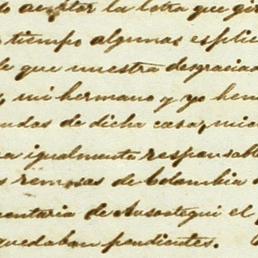 aceptar la letra que gir
tiempo algunas esplic
que nuestra desgraciad
mi hermano y yo hem
das de dicha casa, mic
igualmente responsabl
remesas de Colombia
mentaria de Ansoategui el
quedaban pendientes.